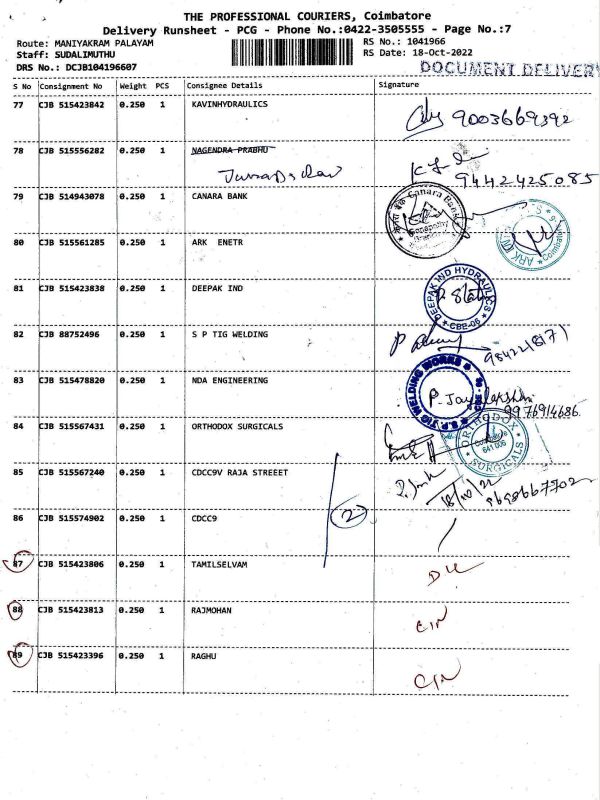 THE PROFESSIONAL COURIERS, Coimbatore
Delivery Runsheet - PCG - Phone No.:0422-3505555 - Page No.:7
Route: MANIYAKRAM PALAYAM
RS No.: 1041966
Staff: SUDALIMUTHU
RS Date: 18-Oct-2022
DRS No.: DCJB104196607
DOCUMENT DELIVERY
S No Consignment No Weight PCS Consignee Details Signature
77 CJB 515423842 0.250 1 KAVINHYDRAULICS 9003669392
78 CJB 515556282 0.250 1 NAGENDRA PRABHU
9442425085
79 CJB 514943078 0.250 1 CANARA BANK
Canara Bank
Ganapathy
Branch
80 CJB 515561285 0.250 1 ARK ENETR
ARK
Coimbatore
81 CJB 515423838 0.250 1 DEEPAK IND
DEEPAK IND HYDRAULICS
CBE-06
82 CJB 88752496 0.250 1 S P TIG WELDING
83 CJB 515478820 0.250 1 NDA ENGINEERING
S.P. TIG WELDING WORKS
9976914686
84 CJB 515567431 0.250 1 ORTHODOX SURGICALS
ORTHODOX SURGICALS
Coimbatore
641 006
85 CJB 515567240 0.250 1 CDCC9V RAJA STREEET
18/10/22
9698667702
86 CJB 515574902 0.250 1 CDCC9
2
87 CJB 515423806 0.250 1 TAMILSELVAM DL
88 CJB 515423813 0.250 1 RAJMOHAN CIN
89 CJB 515423396 0.250 1 RAGHU CIN